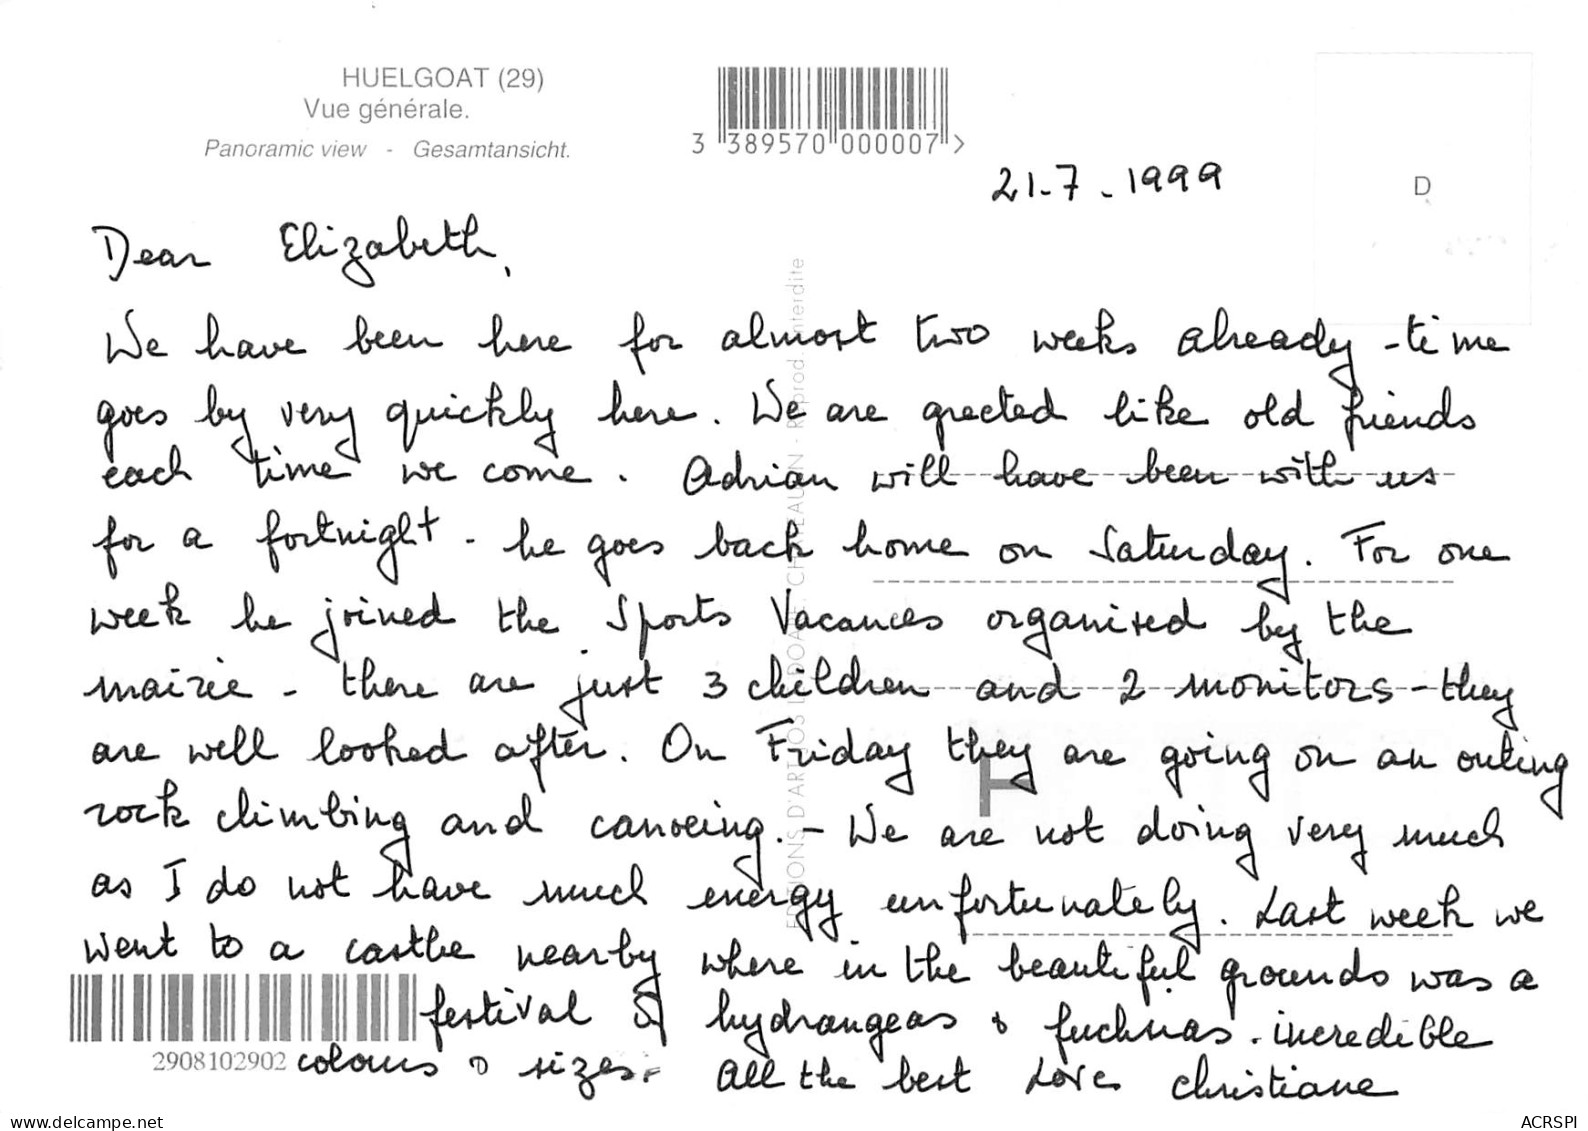 HUELGOAT (29)
Vue générale.
Panoramic view - Gesamtansicht.
3 389570 000007 >
D
21-7-1999
Dear Elizabeth,
We have been here for almost two weeks already - time
goes by very quickly here. We are greeted like old friends
each time we come. Adrian will have been with us
for a fortnight - he goes back home on Saturday. For one
week he joined the Sports Vacances organised by the
mairie - there are just 3 children and 2 monitors - they
are well looked after. On Friday they are going on an outing
rock climbing and canoeing. - We are not doing very much
as I do not have much energy unfortunately. Last week we
went to a castle nearby where in the beautiful grounds was a
festival of hydrangeas & fuchsias. incredible
colours & sizes. All the best Love Christiane
2908102902
EDITIONS D'ART JOS LE DOARÉ, CHATEAULIN - Reprod. interdite
www.delcampe.net
ACRSPI